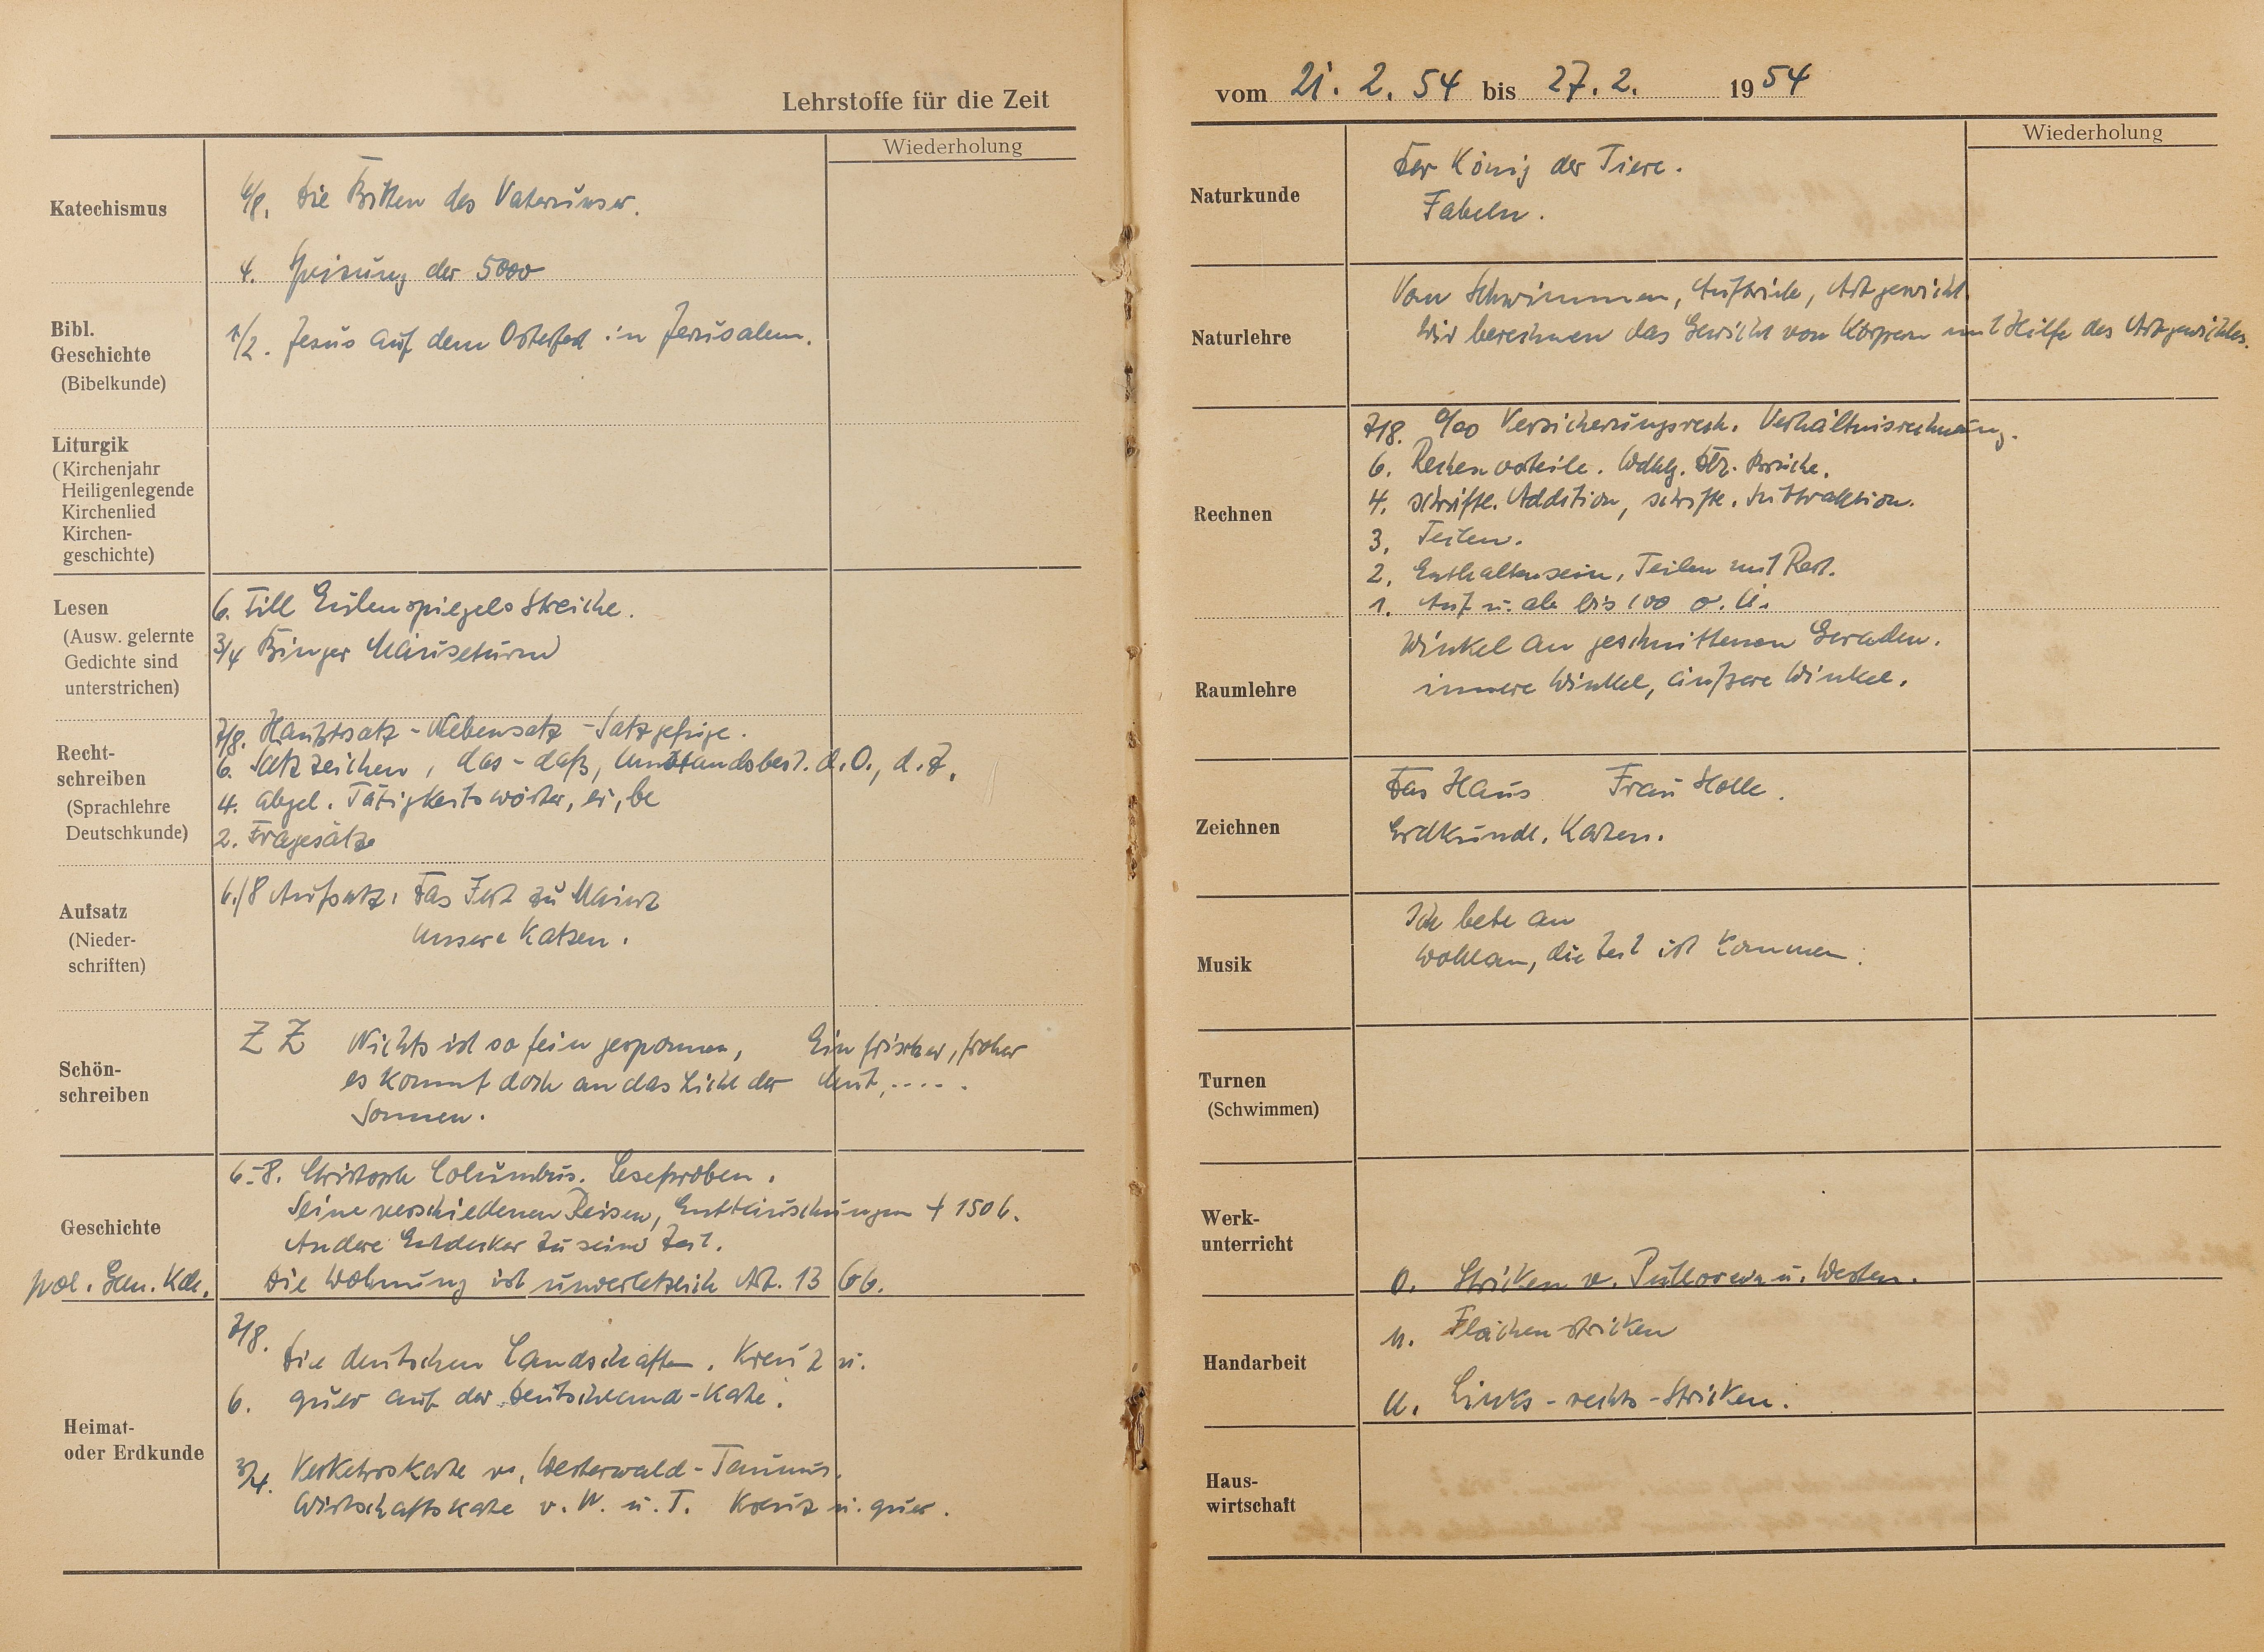 Lehrstoffe für die Zeit
Wiederholung
Katechismus
6/8. Die Bitten des Vaterunser.
4. Speisung der 5000
Bibl.
Geschichte
(Bibelkunde)
1/2. Jesus auf dem Osterfest in Jerusalem.
Liturgik
(Kirchenjahr
Heiligenlegende
Kirchenlied
Kirchen-
geschichte)
Lesen
(Ausw. gelernte
Gedichte sind
unterstrichen)
6. Till Eulenspiegels Streiche.
3/4 Binger Mäuseturm
Recht-
schreiben
(Sprachlehre
Deutschkunde)
7/8. Hauptsatz - Nebensatz - Satzgefüge.
6. Satzzeichen, das - daß, Umstandsbest. d. O., d. Z.
4. abgel. Tätigkeitswörter, er, be
2. Fragesätze
Aufsatz
(Nieder-
schriften)
6./8 Aufsatz: Das Fest zu Mainz
Unsere Katzen.
Schön-
schreiben
Z Z Nichts ist so fein gesponnen, Ein frischer, froher
es kommt doch an das Licht der Mut, ....
Sonnen.
Geschichte
6-8. Christoph Columbus. Leseproben.
Seine verschiedenen Reisen, Enttäuschungen † 1506.
Andere Entdecker zu seiner Zeit.
pol. Gem. Kde. Die Wohnung ist unverletzlich Art. 13 GG.
Heimat-
oder Erdkunde
7/8. Die deutschen Landschaften. Kreuz u.
6. quer auf der Deutschland-Karte.
3/4. Verkehrskarte v. Westerwald - Taunus.
Wirtschaftskarte v. W. u. T. Kreuz u. quer.
vom 21. 2. 54 bis 27. 2. 1954
Wiederholung
Naturkunde
Der König der Tiere.
Fabeln.
Naturlehre
Vom Schwimmen, Auftrieb, Artgewicht.
Wir berechnen das Gewicht von Körpern mit Hilfe des Artgewichtes.
Rechnen
7/8. 0/00 Versicherungsrech. Verhältnisrechnung.
6. Rechenvorteile. Wdhlg. Dez. Brüche.
4. schriftl. Addition, schriftl. Subtraktion.
3. Teilen.
2. Enthaltensein, Teilen mit Rest.
1. Auf u. ab bis 100 o. Ü.
Raumlehre
Winkel an geschnittenen Geraden.
innere Winkel, äußere Winkel.
Zeichnen
Das Haus Frau Holle.
Erdkundl. Karten.
Musik
Ich bete an
Wohlan, die Zeit ist kommen.
Turnen
(Schwimmen)
Werk-
unterricht
Handarbeit
O. Stricken v. Pullovern u. Westen.
M. Flächenstricken
U. Links - rechts - Stricken.
Haus-
wirtschaft